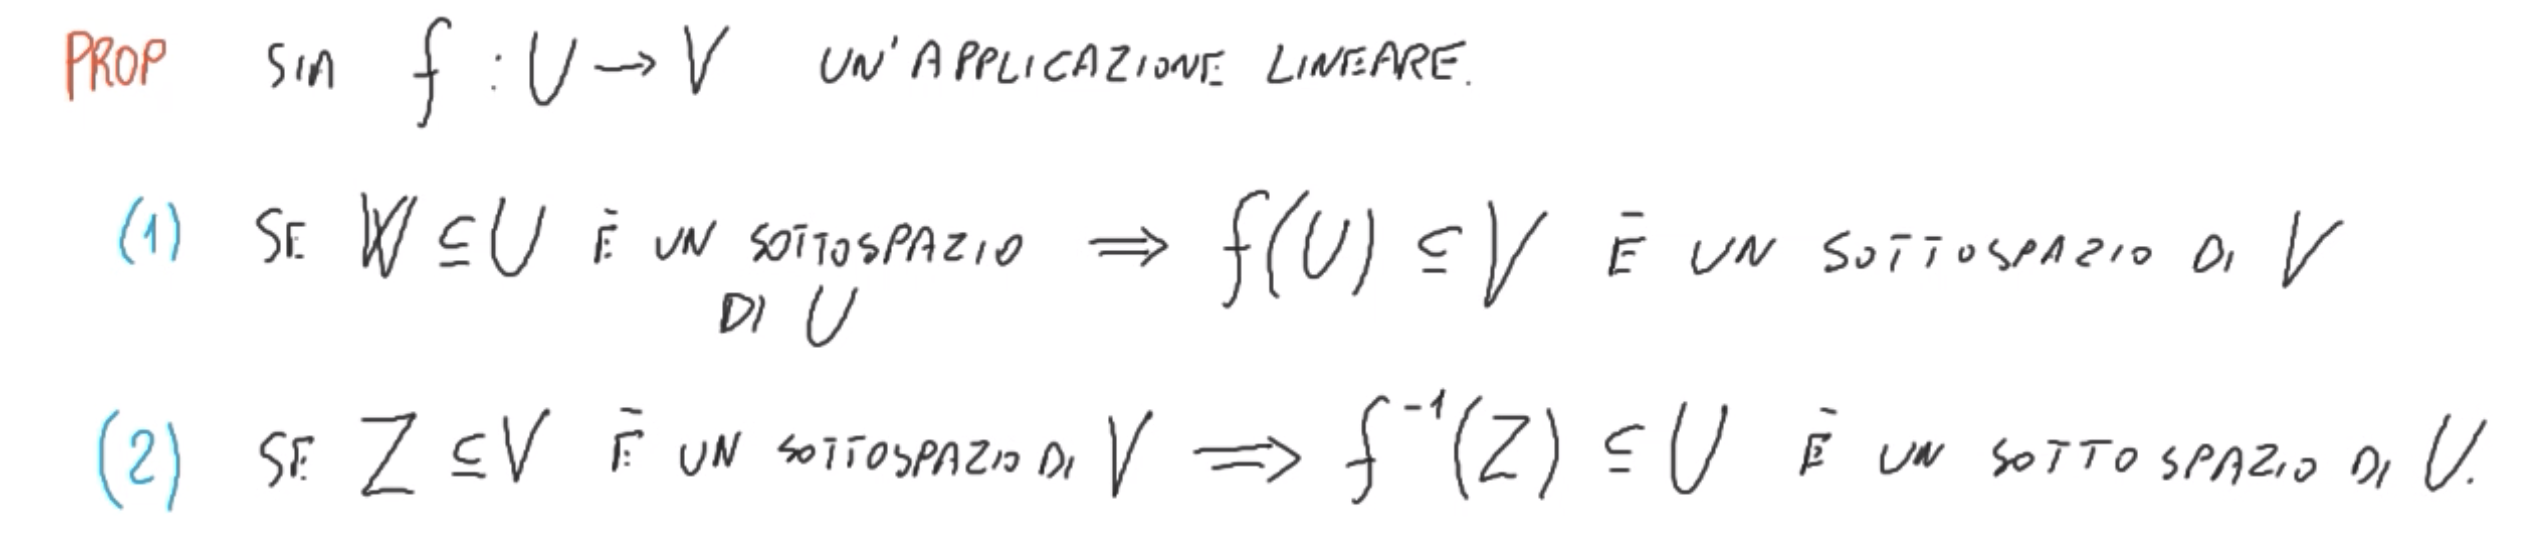 PROP SIA f : U → V UN'APPLICAZIONE LINEARE.
(1) SE W ⊆ U È UN SOTTOSPAZIO ⟹ f(U) ⊆ V È UN SOTTOSPAZIO DI V
DI U
(2) SE Z ⊆ V È UN SOTTOSPAZIO DI V ⟹ f⁻¹(Z) ⊆ U È UN SOTTOSPAZIO DI U.